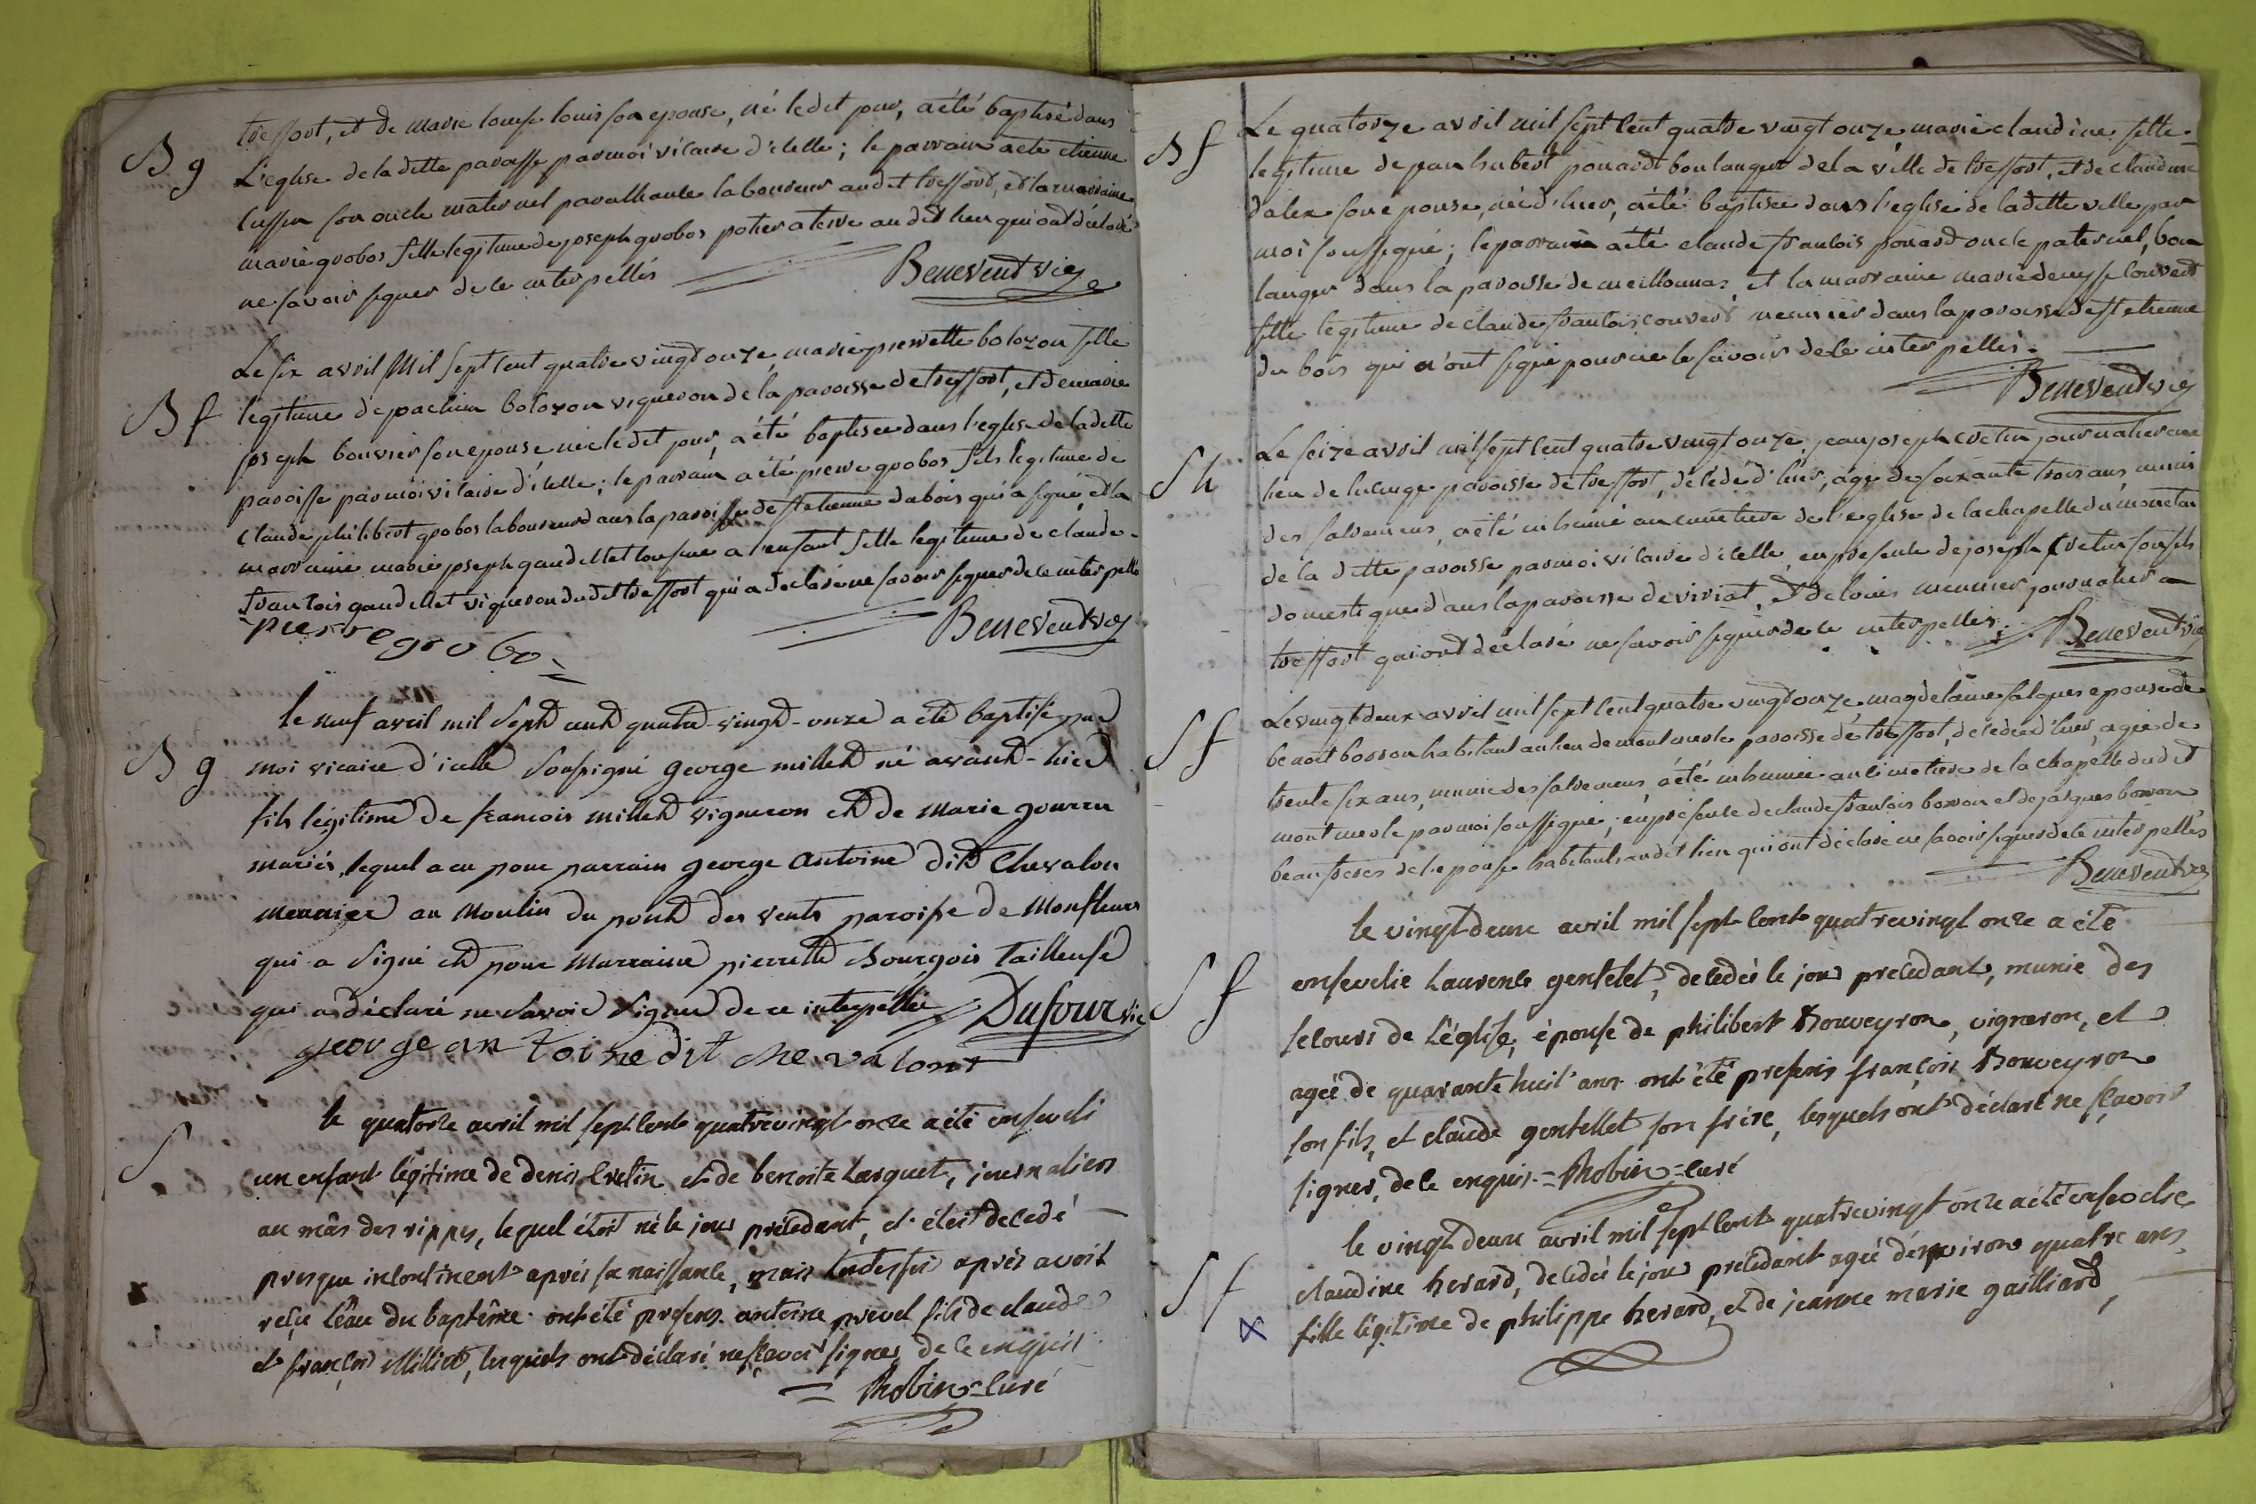 B g
treffort, et de marie louise louis son epouse, né ledit jour, a été baptisé dans
L'eglise de la ditte paroisse par moi vicaire d'icelle; le parrain a ete etienne
son oncle maternel laboureur audit treffort, et la marraine
marie grobos fille legitime de joseph grobos potier a terre au dit lieu qui ont déclaré
ne savoir signer de ce interpellés
Benevent vic
B f
Le six avril Mil sept cent quatre vingt onze, marie pierrette bolozon fille
legitime de joachim bolozon vigneron de la paroisse de treffort, et de marie
joseph bouvier son epouse née ledit jour, a été baptisée dans l'eglise de la ditte
paroisse par moi vicaire d'icelle; le parrain a été pierre grobos fils legitime de
Claude philibert grobos laboureur dans la paroisse de st etienne dubois qui a signé, et la
marraine marie joseph gaudillet cousine a l'enfant fille legitime de claude
francois gaudillet vigneron dudit treffort qui a declaré ne savoir signer de ce interpellé
pierre grobo
Benevent vic
B g
le neuf avril mil sept cent quatre-vingt-onze a été baptisé par
moi vicaire d'icelle soussigné george millet né avant-hier
fils légitime de francois millet vigneron et de Marie
mariés, lequel a eu pour parrain george Antoine dit Chevalon
meunier au Moulin du pont des vents paroisse de Monfleur
qui a signé et pour Marraine pierrette Bourgois tailleuse
qui a déclaré ne savoir signer de ce interpellée
Dufour vic
george antoine dit chevalont
S
le quatorze avril mil sept cent quatrevingt onze a été enseveli
un enfant légitime de denis Cretin et de benoite Larquet, journaliers
au mâs des rippes, lequel étoit né le jour précedent, et étoit decedé
presque incontinent aprés sa naissance, mais toutesfois aprés avoir
reçu l'eau du baptême. ont été presens. antoine prevel fils de claude
et françois Milliet, lesquels ont déclaré ne sçavoir signer, de ce enquis
= Robin = curé
B f
Le quatorze avril mil sept cent quatre vingt onze, marie claudine fille
legitime de jean hubert ponard boulanger de la ville de treffort, et de claudine
dalex son epouse, née d'hier, a été baptisée dans l'eglise de la ditte ville par
moi soussigné; le parrain a été claude francois ponard oncle paternel, bou
langer dans la paroisse de meillonnas, et la marraine marie denyse couvert
fille legitime de claude francois couvert meunier dans la paroisse de st etienne
du bois qui n'ont signé pour ne le savoir de ce interpellés.
Benevent vic
S h
Le seize avril mil sept cent quatre vingt onze, jean joseph cretin journalier au
lieu de lucinge paroisse de treffort, décédé d'hier, agé de soixante trois ans, muni
des sacremens, a été inhumé au cimetiere de l'eglise de la chapelle du mouctau
de la ditte paroisse par moi vicaire d'icelle, en presence de joseph Cretin son fils
domestique dans la paroisse de viriat, et de louis meunier journalier a
treffort qui ont déclaré ne savoir signer de ce interpellés.
Benevent vic
S f
Le vingt deux avril mil sept cent quatre vingt onze, magdelaine falquet epouse de
benoit bosson habitant au lieu de montmerle paroisse de treffort, décédée d'hier, agée de
trente six ans, munie des sacremens, a été inhumée au cimetiere de la chapelle dudit
montmerle par moi soussigné; en présence de claude francois bosson et de jacques bosson
beaufreres de l'epouse habitants audit lieu qui ont déclaré ne savoir signer de ce interpellés
Benevent vic
S f
le vingt deux avril mil sept cent quatrevingt onze a été
ensevelie Laurence gentelet, decedée le jour precedent, munie des
secours de L'église, épouse de philibert Bouveyron, vigneron, et
agée de quarante huit ans. ont été presens françois Bouveyron
son fils, et claude gentellet son frère, lesquels ont déclaré ne sçavoir
signer, de ce enquis. = Robin = curé
S f
le vingt deux avril mil sept cent quatrevingt onze a été ensevelie
claudine herard, decedée le jour precedent agée d'environ quatre ans
fille légitime de philippe herard, et de jeanne marie gailliard,